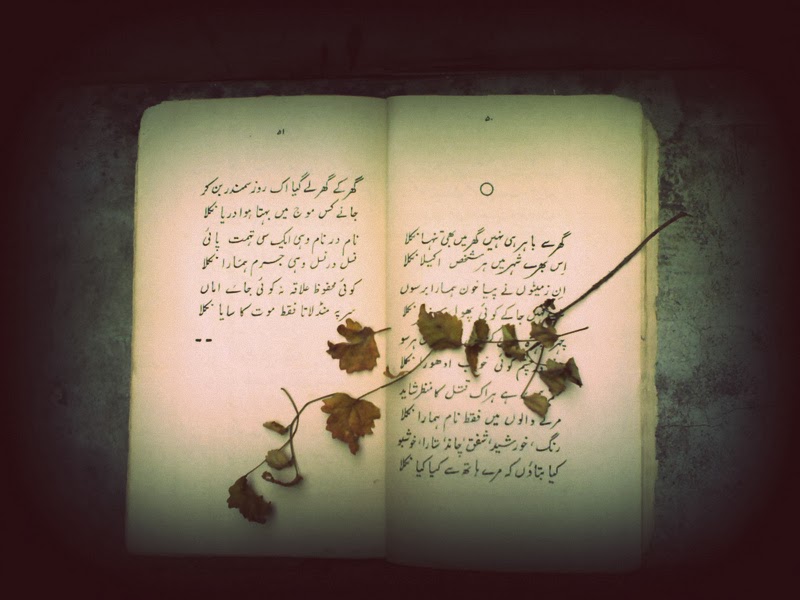 ۵۰
گھر سے باہر ہی نہیں گھر میں بھی تنہا نکلا
اِس بھرے شہر میں ہر شخص اکیلا نکلا
اِن زمینوں نے پیا خون ہمارا برسوں
جا کے کوئی پھول نکلا
ہر سو
کوئی خواب ادھورا نکلا
ہے ہر اک قتل کا منظر شاید
مرنے والوں میں فقط نام ہمارا نکلا
رنگ، خورشید، شفق، چاند، ستارا، خوشبو
کیا بتاؤں کہ مرے ہاتھ سے کیا کیا نکلا
۵۱
گھر کے گھر لے گیا اک روز سمندر بن کر
جانے کس موج میں بہتا ہوا دریا نکلا
نام در نام وہی ایک سی تہمت پائی
نسل در نسل وہی جرم ہمارا نکلا
کوئی محفوظ علاقہ نہ کوئی جائے اماں
سر پہ منڈلاتا فقط موت کا سایا نکلا